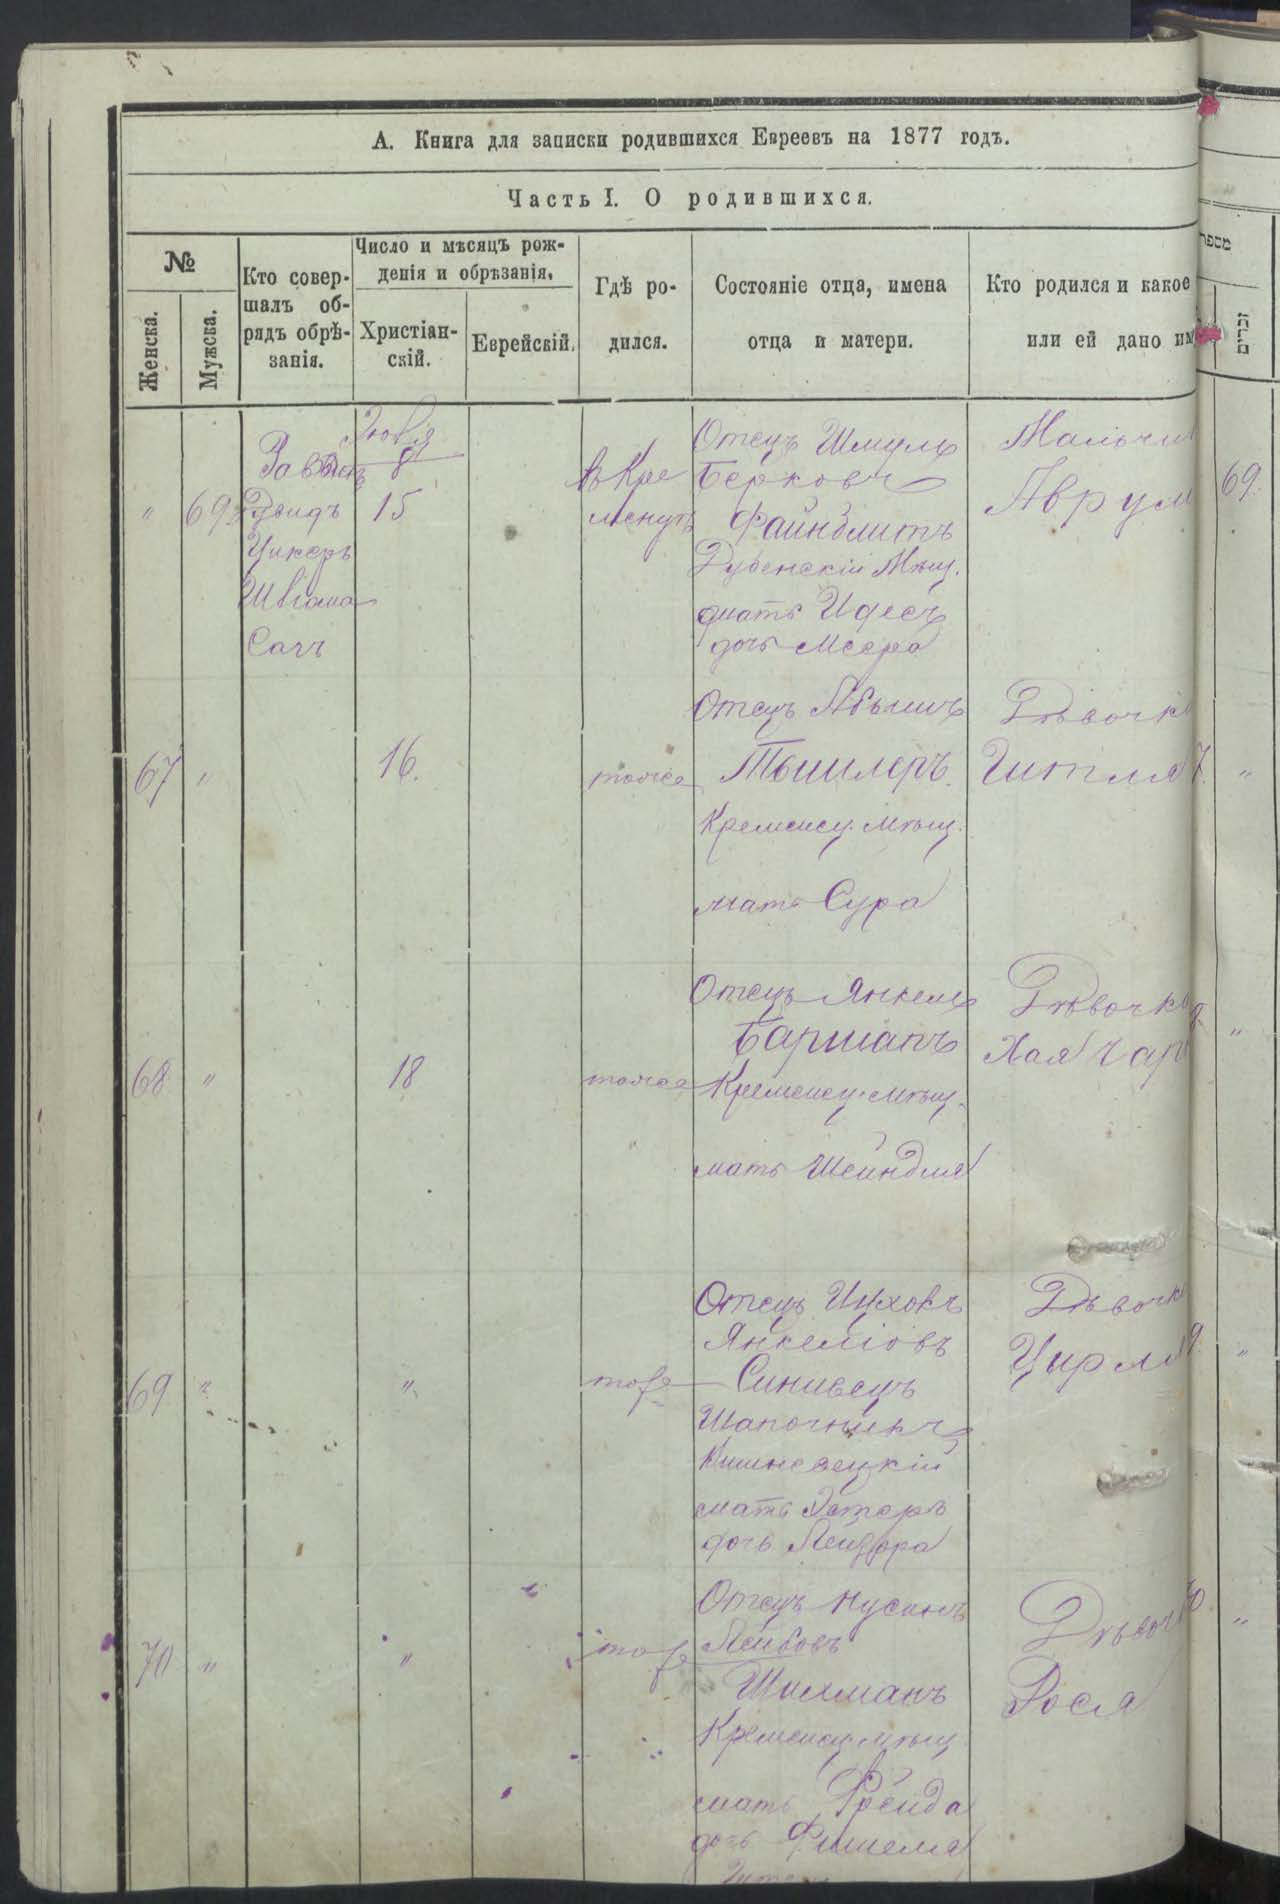 А. Книга для записки родившихся Евреевъ на 1877 годъ.
Часть I. О родившихся.
№
Женска.
Мужска.
Кто совер-
шалъ об-
рядъ обрѣ-
занія.
Число и мѣсяцъ рож-
денія и обрѣзанія.
Христіан-
скій.
Еврейскій.
Гдѣ ро-
дился.
Состояніе отца, имена
отца и матери.
Кто родился и какое
или ей дано им
מספר
זכרים
" 69
Цукеръ
8
15
въ Кре
менцѣ
Отецъ Шмуль
Берковъ
Файнблитъ
Дубенскій Мѣщ.
мать Идесъ
дочь Меера
Мальчи
Аврум
69.
67 "
16.
тоже
Отецъ
Кременец. Мѣщ.
мать Сура
Дѣвочк
Гитля
7. "
68 "
18
тоже
Отецъ Янкель
Барманъ
Кременец. мѣщ.
мать Шейндля
Дѣвочк
Хая
8. "
69 "
"
тоже
Отецъ Ицхокъ
Янкеліовъ
Шапочникъ
мать Эстеръ
дочь Лейзора
Дѣвочк
Цирля
9. "
70 "
"
тоже
Отецъ Нусинъ
Лейбовъ
Шихманъ
Кременец. мѣщ
мать Фрейда
дочь Фишеля
Дѣвоч
Рося
70 "